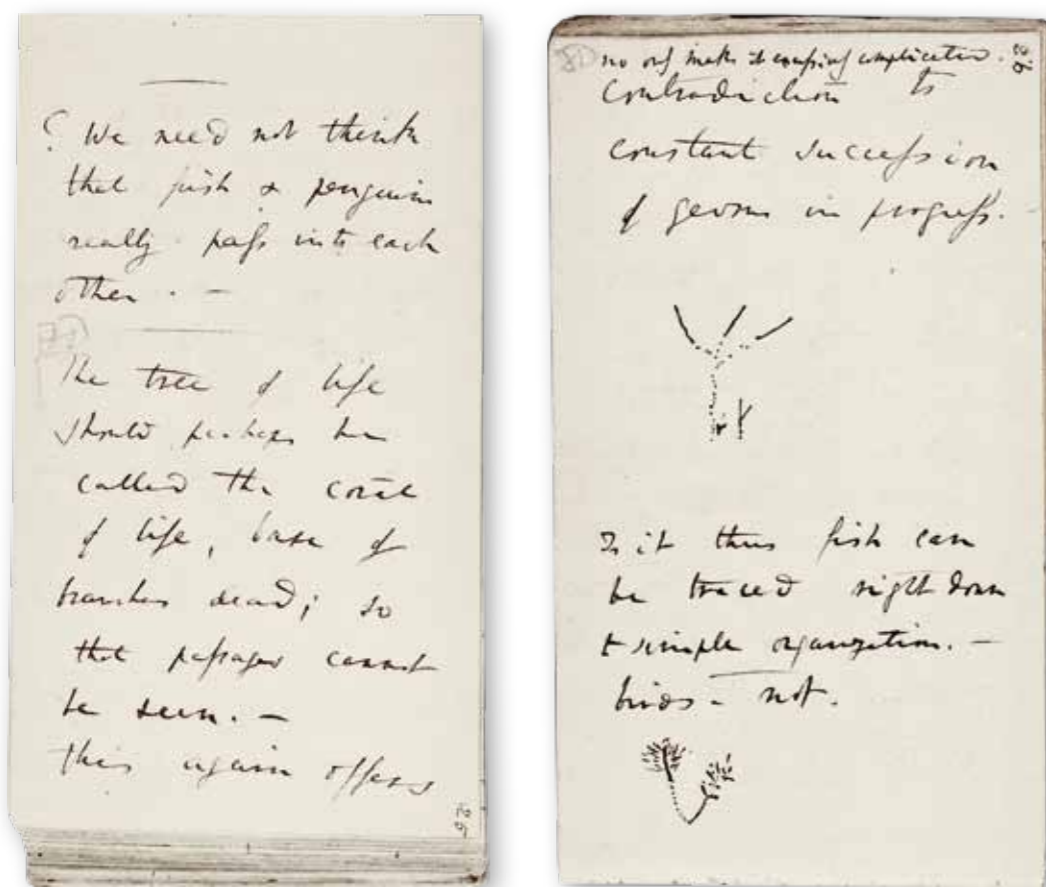 ? We need not think
that fish & penguins
really pass into each
other. —
The tree of life
should perhaps be
called the coral
of life, base of
branches dead; so
that passages cannot
be seen. —
this again offers
25
26
no only makes it excessively complicated.
contradiction to
constant succession
of germs in progress.
Is it thus fish can
be traced right down
to simple organization. —
birds — not.